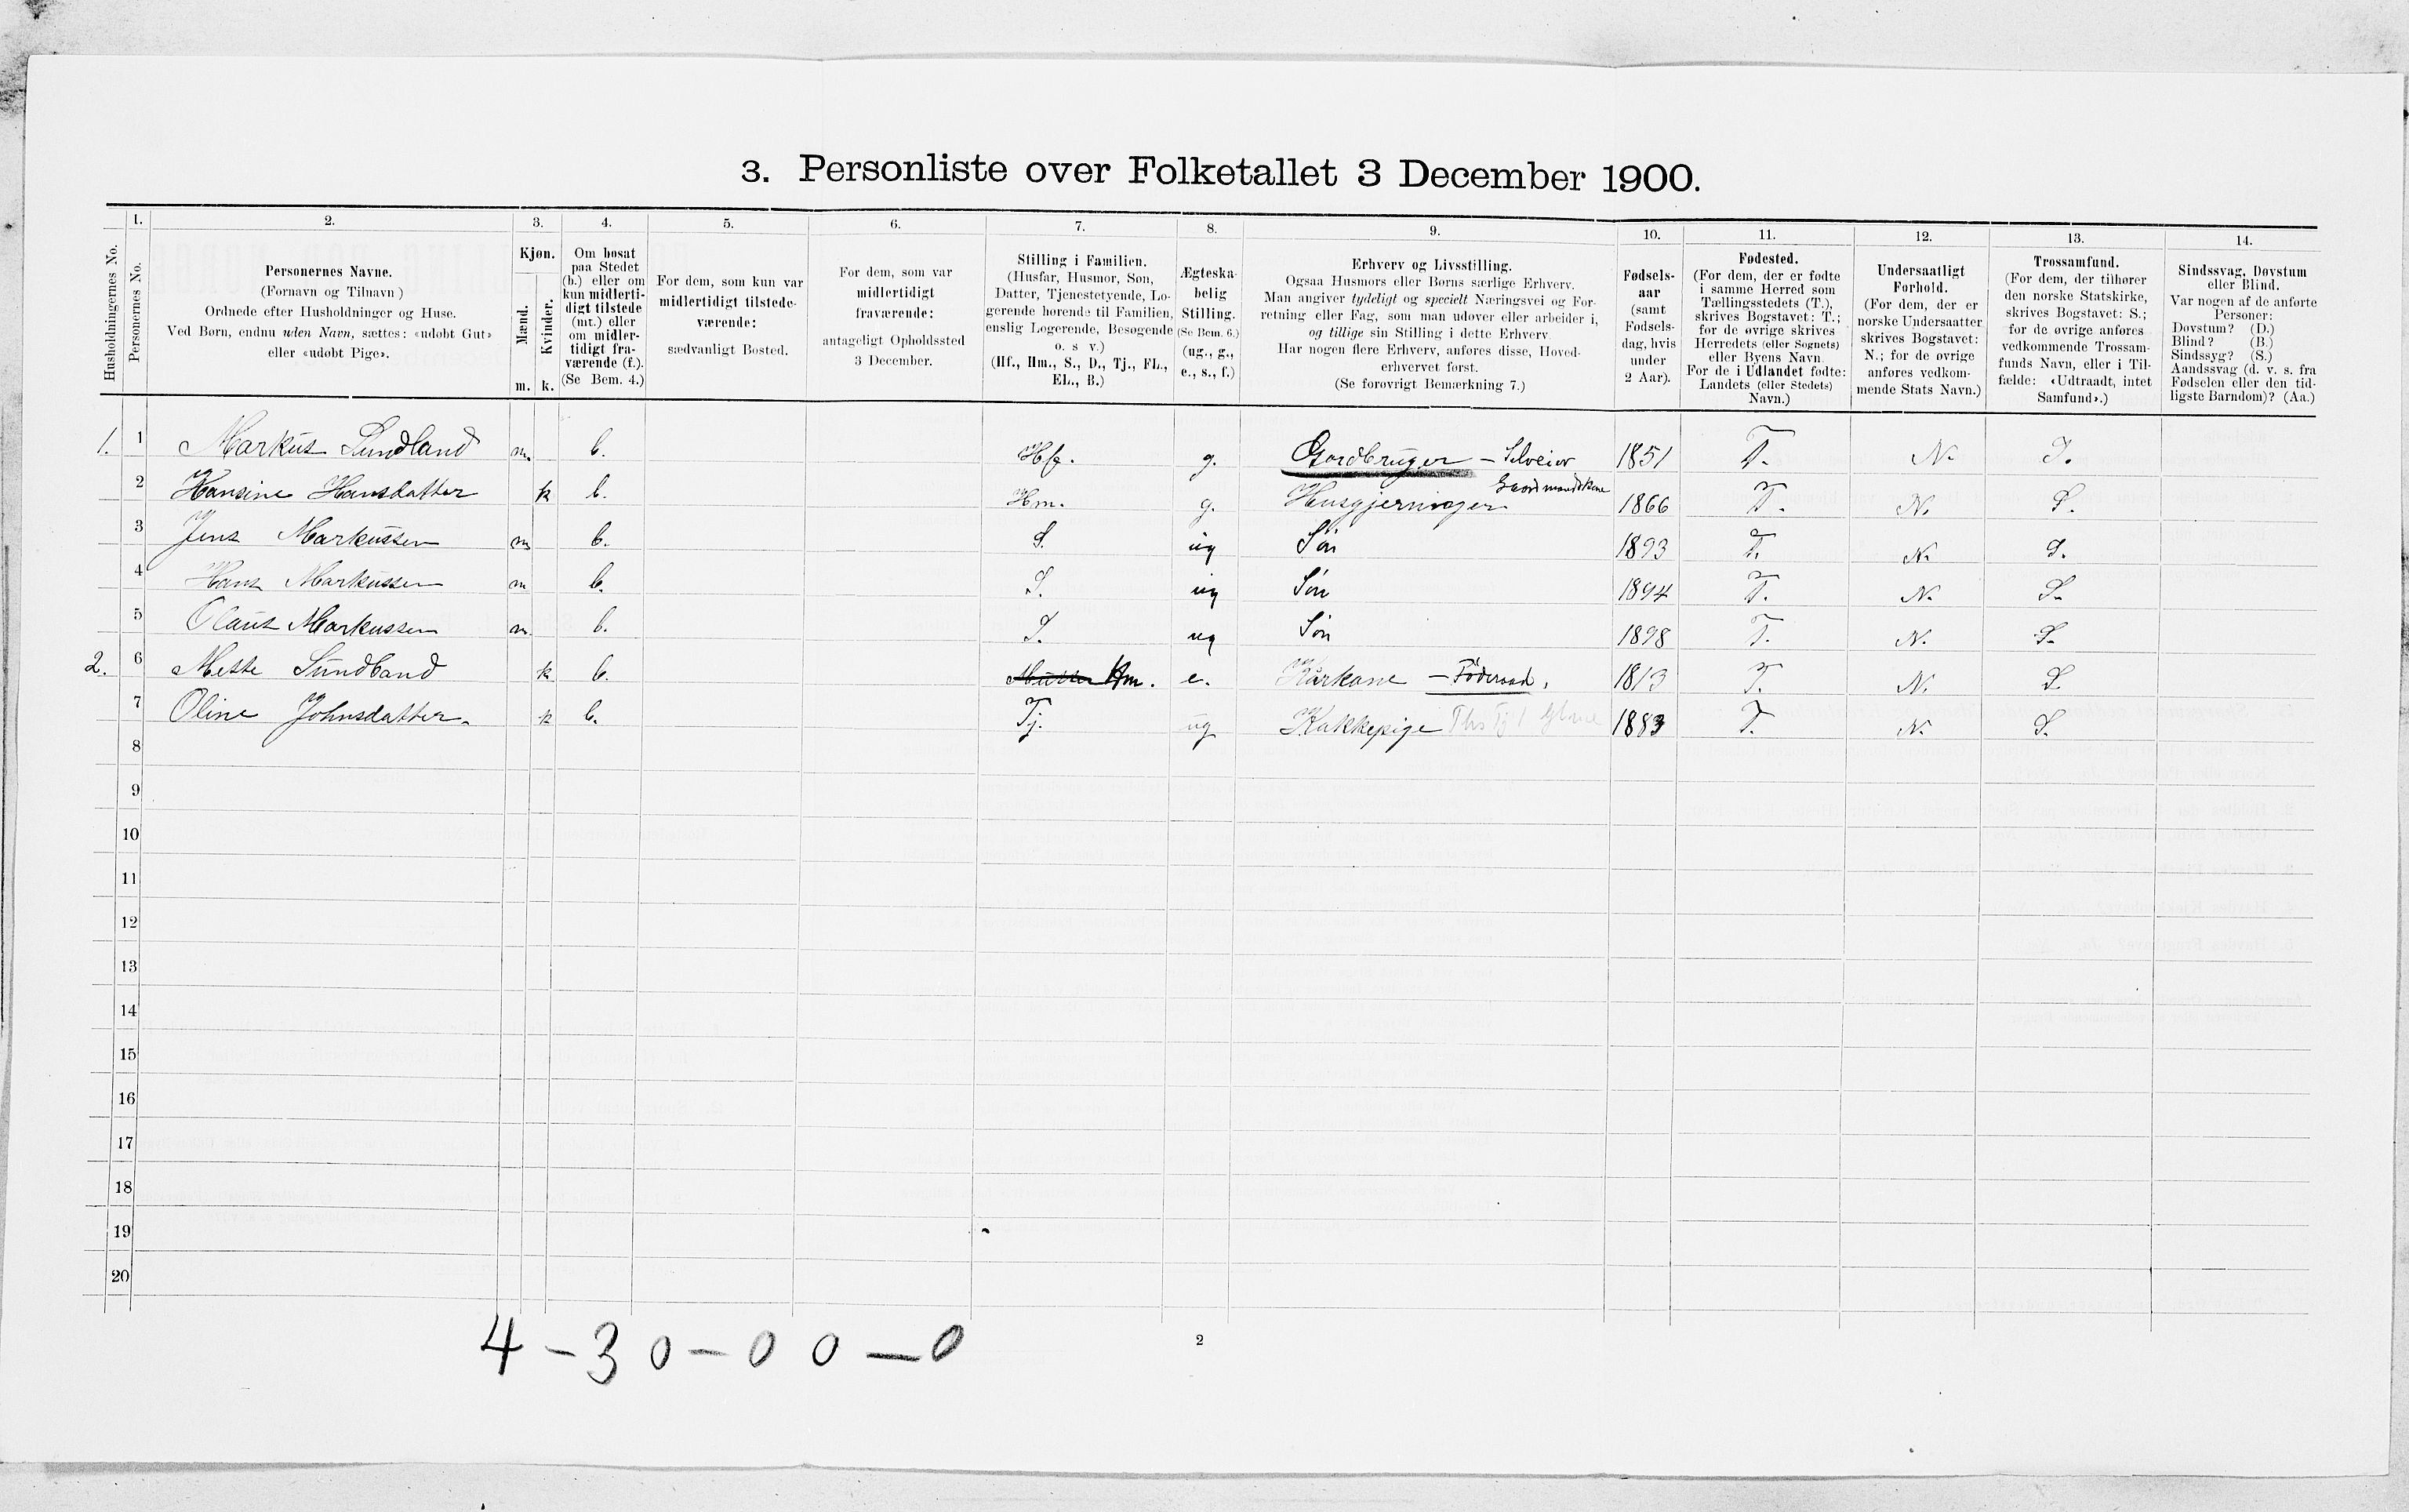 3. Personliste over Folketallet 3 December 1900.
1. 2. 3. 4. 5. 6. 7. 8. 9. 10. 11. 12. 13. 14.
Husholdningernes No.
Personernes No.
Personernes Navne.
(Fornavn og Tilnavn)
Ordnede efter Husholdninger og Huse.
Ved Børn, endnu uden Navn, sættes: «udøbt Gut»
eller «udøbt Pige».
Kjøn.
Mænd.
Kvinder.
m. k.
Om bosat
paa Stedet
(b.) eller om
kun midlerti-
digt tilstede
(mt.) eller
om midler-
tidigt fra-
værende (f.).
(Se Bem. 4.)
For dem, som kun var
midlertidigt tilstede-
værende:
sædvanligt Bosted.
For dem, som var
midlertidigt
fraværende:
antageligt Opholdssted
3 December.
Stilling i Familien.
(Husfar, Husmor, Søn,
Datter, Tjenestetyende, Lo-
gerende hørende til Familien,
enslig Logerende, Besøgende
o. s v.)
(Hf., Hm., S., D., Tj., FL.,
EL., B.)
Ægteska-
belig
Stilling.
(Se Bem. 6.)
(ug., g.,
e., s., f.)
Erhverv og Livsstilling.
Ogsaa Husmors eller Børns særlige Erhverv.
Man angiver tydeligt og specielt Næringsvei og For-
retning eller Fag, som man udøver eller arbeider i,
og tillige sin Stilling i dette Erhverv.
Har nogen flere Erhverv, anføres disse, Hoved-
erhvervet først.
(Se forøvrigt Bemærkning 7.)
Fødsels-
aar
(samt
Fødsels-
dag, hvis
under
2 Aar).
Fødested.
(For dem, der er fødte
i samme Herred som
Tællingsstedets (T.),
skrives Bogstavet: T.;
for de øvrige skrives
Herredets (eller Sognets)
eller Byens Navn.
For de i Udlandet fødte:
Landets (eller Stedets)
Navn.)
Undersaatligt
Forhold.
(For dem, der er
norske Undersaatter,
skrives Bogstavet:
N.; for de øvrige
anføres vedkom-
mende Stats Navn.)
Trossamfund.
(For dem, der tilhører
den norske Statskirke,
skrives Bogstavet: S.;
for de øvrige anføres
vedkommende Trossam-
funds Navn, eller i Til-
fælde: «Udtraadt, intet
Samfund».)
Sindssvag, Døvstum
eller Blind.
Var nogen af de anførte
Personer:
Døvstum? (D.)
Blind? (B.)
Sindssyg? (S.)
Aandssvag (d. v. s. fra
Fødselen eller den tid-
ligste Barndom)? (Aa.)
1. 1 Markus Sundland m. b. Hf. g. Gaardbruger – Selveier 1851 T. N. S.
Gaardmandskone
2 Hansine Hansdatter k b. Hm. g. Husgjerninger 1866 T. N. S.
3 Jens Markussen m b. S. ug Søn 1893 T. N. S.
4 Hans Markussen m b. S. ug Søn 1894 T. N. S.
5 Olaus Markussen m. b. S. ug Søn 1898 T. N. S.
2. 6 Mette Sundland k. b. Hm. e. Kårkone – Föderaad. 1813 T. N. S.
7 Oline Johnsdatter. k b. Tj. ug Kakkepige 1883 T. N. S.
8
9
10
11
12
13
14
15
16
17
18
19
20
4 – 3 0 – 0 0 – 0
2